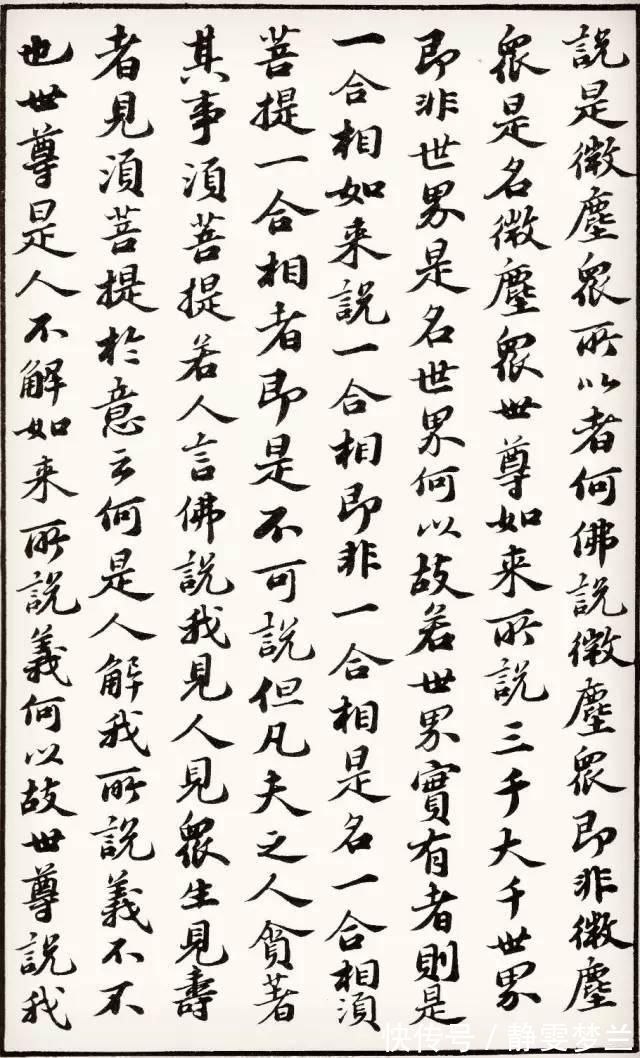 說是微塵眾所以者何佛說微塵眾即非微塵
眾是名微塵眾世尊如来所說三千大千世界
即非世界是名世界何以故若世界實有者則是
一合相如来說一合相即非一合相是名一合相須
菩提一合相者即是不可說但凡夫之人貪著
其事須菩提若人言佛說我見人見眾生見壽
者見須菩提於意云何是人解我所說義不不
也世尊是人不解如来所說義何以故世尊說我
快传号/静雯梦兰